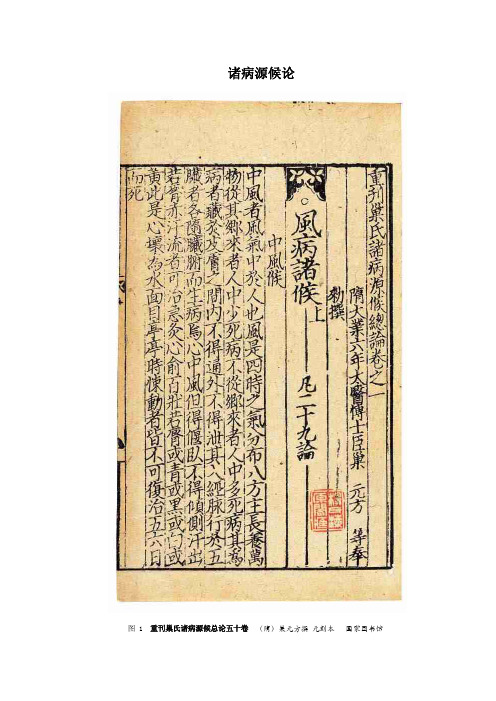 诸病源候论
重刊巢氏諸病源候總論卷之一
隋大業六年太醫博士臣巢 元方 等奉
勑撰
風病諸候上 凡二十九論
中風候
中風者風氣中於人也風是四時之氣分布八方主長養萬
物從其鄉來者人中少死病不從鄉來者人中多死病其為
病者藏於皮膚之間內不得通外不得泄其入經脉行於五
臟者各隨臟腑而生病焉心中風但得偃臥不得傾側汗出
若唇赤汗流者可治急灸心俞百壯若唇或青或黑或白或
黃此是心壞為水面目亭亭時悚動者皆不可復治五六日
而死
图 1 重刊巢氏诸病源候总论五十卷 （隋）巢元方撰 元刻本 国家图书馆